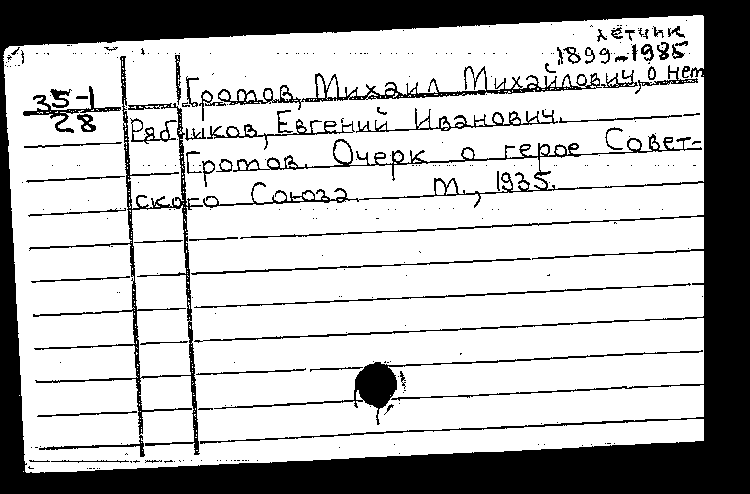 летчик
1899-1985
Громов, Михаил Михайлович, о нем
35-1
28
Рябчиков, Евгений Иванович.
Громов. Очерк о герое Совет-
ского Союза. М., 1935.